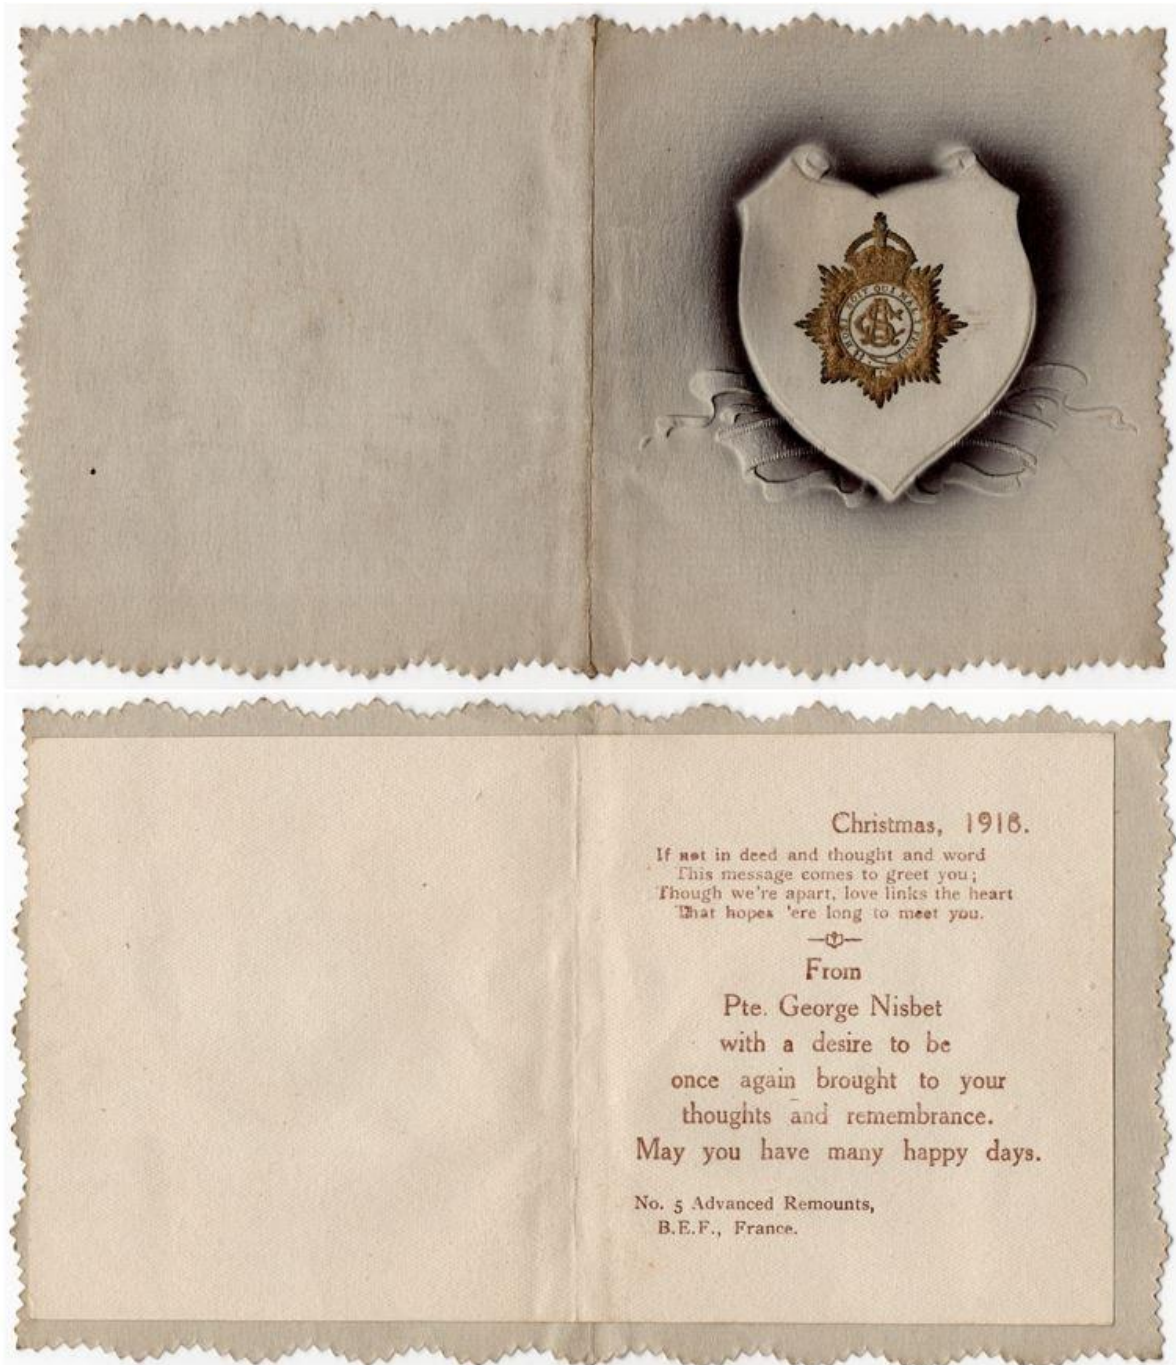 HONI SOIT QUI MAL Y PENSE
ASC
Christmas, 1918.
If not in deed and thought and word
This message comes to greet you;
Though we're apart, love links the heart
That hopes 'ere long to meet you.
From
Pte. George Nisbet
with a desire to be
once again brought to your
thoughts and remembrance.
May you have many happy days.
No. 5 Advanced Remounts,
B.E.F., France.